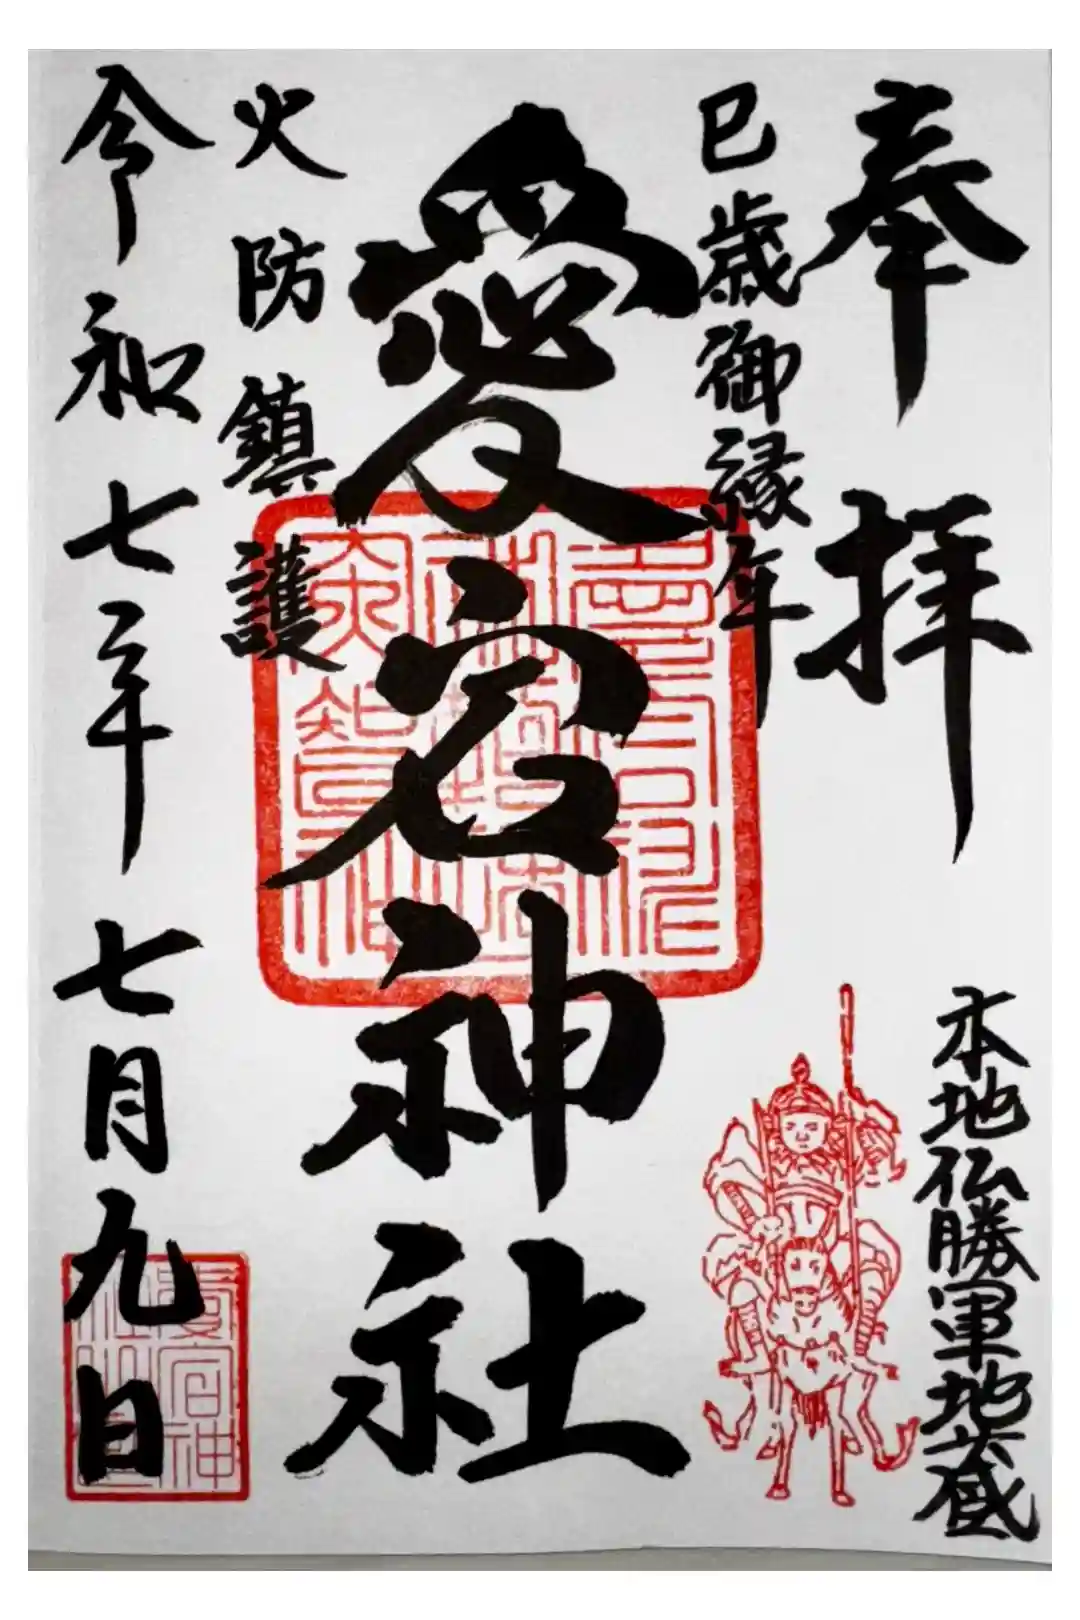 奉拝
本地仏勝軍地蔵
巳歳御縁年
愛宕神社
火防鎮護
令和七年七月九日
愛宕神